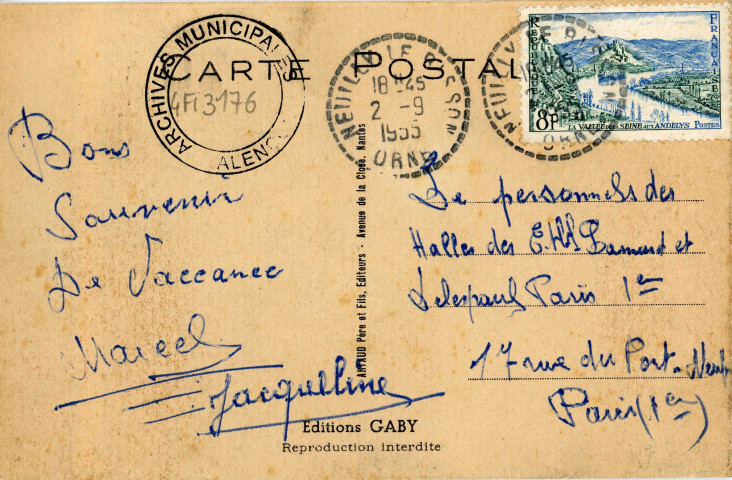 CARTE POSTALE
ARCHIVES MUNICIPALES
4Fi3176
ALENÇON
NEUILLY-LE-BISSON
18-45
2-9
1955
ORNE
RÉPUBLIQUE FRANÇAISE
8F
LA VALLÉE DE LA SEINE AUX ANDELYS POSTES
Bons
Souvenir
De Vaccances
Marcel
Jacqueline
ARTAUD Père et Fils, Editeurs - Avenue de la Close, Nantes
Le personnels des
Halles des Ets et
Paris 1er
17 rue du Pont-Neuf
Paris (1er)
Editions GABY
Reproduction interdite